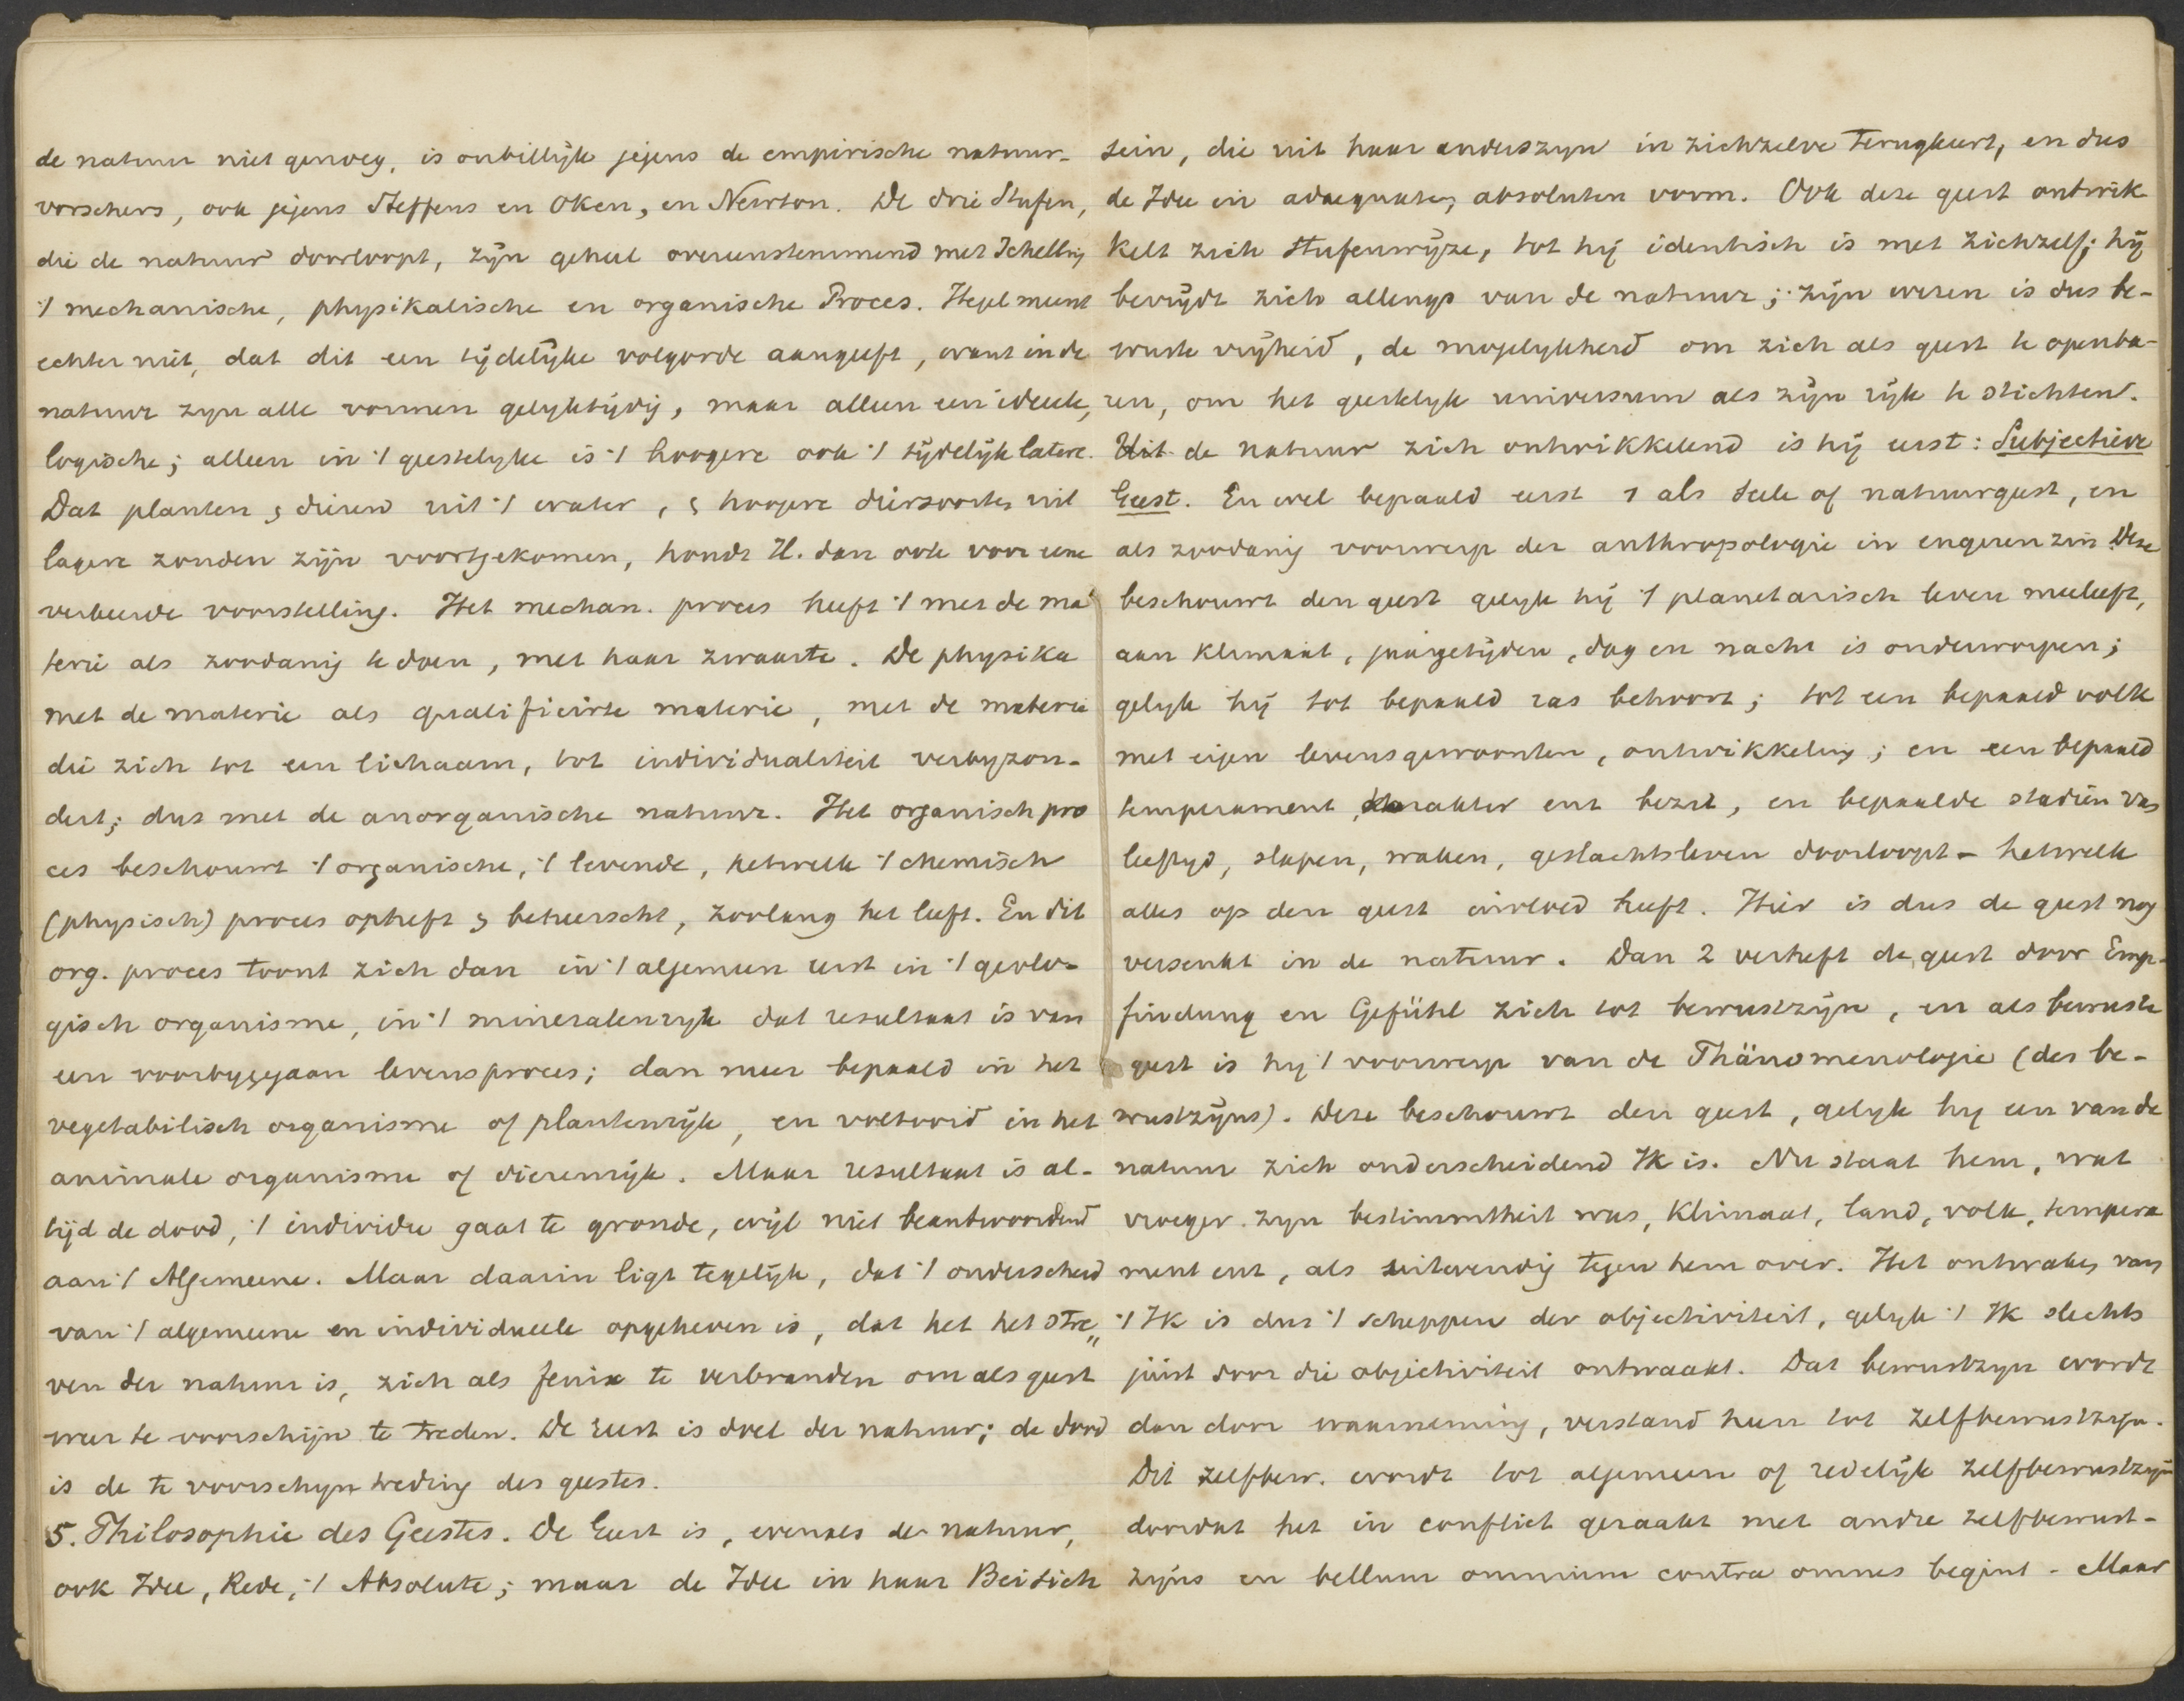 de natuur niet genoeg, is onbillijk jegens de empirische natuur-
vorschers, ook jegens Steffens en Oken, en Newton. De drie Stufen,
die de natuur doorloopt, zijn geheel overeenstemmend met Schelling
't mechanische, physikalische en organische Proces. Hegel meent
echter niet, dat dit een tijdelijke volgorde aangeeft, want in de
natuur zyn alle vormen gelyktijdig, maar alleen een ideeele,
logische; alleen in 't geestelyke is 't hoogere ook 't tijdelijk latere.
Dat planten & dieren uit 't water, & hoogere diersoorten uit
lagere zouden zijn voortgekomen, houdt H. dan ook voor eene
verkeerde voorstelling. Het mechan. proces heeft 't met de ma
terie als zoodanig te doen, met haar zwaarte. De physika
met de materie als qualificirte materie, met de materie
die zich tot een lichaam, tot individualiteit verbyzon-
dert; dus met de anorganische natuur. Het organisch pro
ces beschouwt 't organische, 't levende, hetwelk 't chemisch
(physisch) proces opheft & beheerscht, zoolang het leeft. En dit
org. proces toont zich dan in 't algemeen eerst in 't geolo-
gisch organisme, in 't mineralenryk dat resultaat is van
een voorbygegaan levensproces; dan meer bepaald in het
vegetabilisch organisme of plantenrijk, en voltooid in het
animale organisme of dierenrijk. Maar resultaat is al-
tijd de dood, 't individu gaat te gronde, wijl niet beantwoordend
aan 't Algemeene. Maar daarin ligt tegelijk, dat 't onderscheid
van 't algemeene en individueele opgeheven is, dat het het stre„
ven der natuur is, zich als fenix te verbranden om als geest
weer te voorschijn te treden. De Geest is doel der natuur; de dood
is de te voorschyn treding des geestes.
5. Philosophie des Geestes. De Geest is, evenals de natuur,
ook Idee, Rede, 't Absolute; maar de Idee in haar Beisich
sein, die uit haar anderszyn in zichzelve terugkeert, en dus
de Idee in adaequaten, absoluten vorm. Ook deze geest ontwik
kelt zich stufenwijze, tot hij identisch is met zichzelf; hij
bevrijdt zich allengs van de natuur; zijn wezen is dus be-
wuste vrijheid, de mogelykheid om zich als geest te openba-
ren, om het geestelyk universum als zijn rijk te stichten.
Uit de natuur zich ontwikkelend is hij eerst: Subjectieve
Geest. En wel bepaald eerst 1 als Seele of natuurgeest, en
als zoodanig voorwerp der anthropologie in engeren zin. Deze
beschouwt den geest gelyk hij 't planetarisch leven meeleeft,
aan klimaat, jaargetijden, dag en nacht is onderworpen;
gelyk hij tot bepaald ras behoort; tot een bepaald volk
met eigen levensgewoonten, ontwikkeling; en een bepaald
temperament, karakter enz bezit, en bepaalde stadiën van
leeftyd, slapen, waken, geslachtsleven doorloopt - hetwelk
alles op den geest invloed heeft. Hier is dus de geest nog
versenkt in de natuur. Dan 2 verheft de geest door Emp-
findung en Gefühl zich tot bewustzijn, en als bewuste
geest is hy 't voorwerp van de Phänomenologie (des be-
wustzijns). Deze beschouwt den geest, gelyk hy een van de
natuur zich onderscheidend Ik is. Nu staat hem, wat
vroeger zyn bestimmtheit was, klimaat, land, volk, tempera
ment enz, als uitwendig tegen hem over. Het ontwaken van
't Ik is dus 't scheppen der objectiviteit, gelyk 't Ik slechts
juist door die objectiviteit ontwaakt. Dat bewustzyn wordt
dan door waarneming, verstand heen tot zelfbewustzyn.
Dit zelfbew. wordt tot algemeen of redelijk zelfbewustzyn
doordat het in conflict geraakt met andre zelfbewust-
zijns en bellum omnium contra omnes begint - Maar